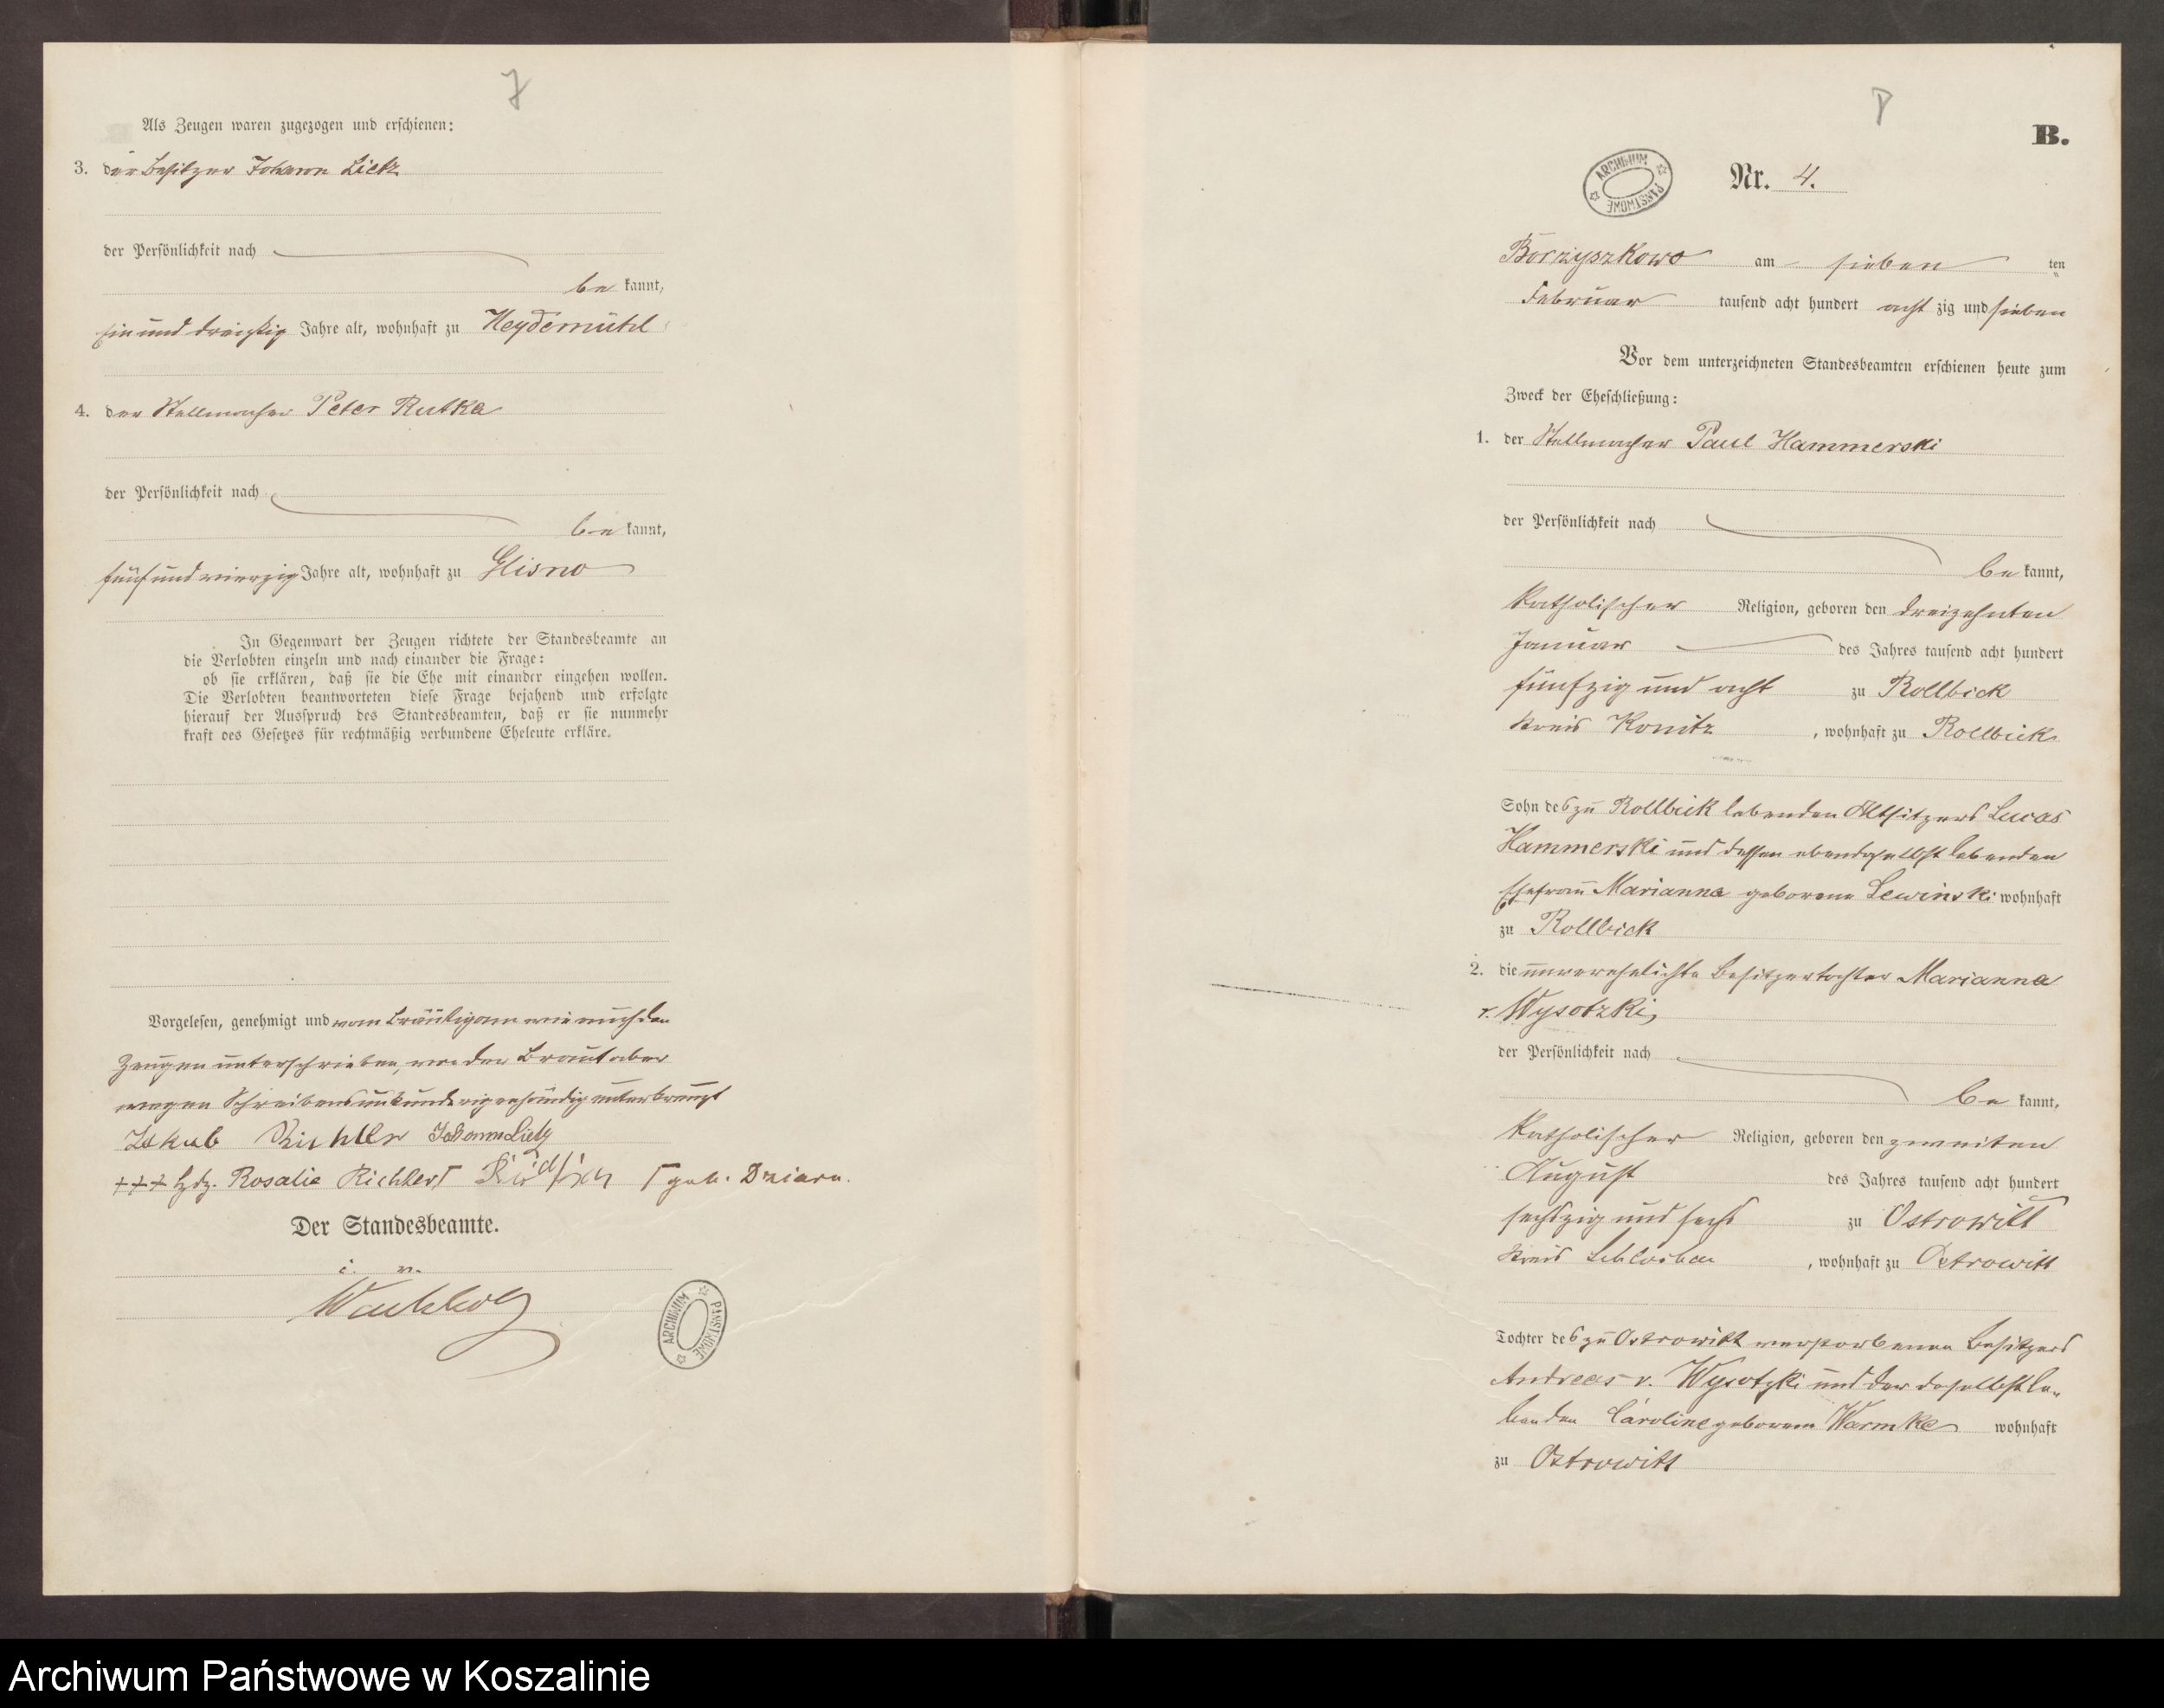 7
Als Zeugen waren zugezogen und erschienen:
3. der Besitzer Johann Lietz
der Persönlichkeit nach
be kannt,
ein und dreißig Jahre alt, wohnhaft zu Heydemühl
4. der Stellmacher Peter Rutka
der Persönlichkeit nach
be kannt,
fünf und vierzig Jahre alt, wohnhaft zu Glisno
In Gegenwart der Zeugen richtete der Standesbeamte an
die Verlobten einzeln und nach einander die Frage:
ob sie erklären, daß sie die Ehe mit einander eingehen wollen.
Die Verlobten beantworteten diese Frage bejahend und erfolgte
hierauf der Ausspruch des Standesbeamten, daß er sie nunmehr
kraft des Gesetzes für rechtmäßig verbundene Eheleute erkläre.
Vorgelesen, genehmigt und vom Bräutigam wie auch den
Zeugen unterschrieben, von der Braut aber
wegen Schreibensunkunde eigenhändig unterkreuzt
Jakub Johann Lietz
+++ Hdz. Rosalie Richlert geb. Dziara.
Der Standesbeamte.
i. v.
ARCHIWUM PAŃSTWOWE
B.
ARCHIWUM PAŃSTWOWE
Nr. 4.
Borzyszkowo am sieben ten
Februar tausend acht hundert acht zig und sieben
Vor dem unterzeichneten Standesbeamten erschienen heute zum
Zweck der Eheschließung:
1. der Stellmacher Paul Hammerski
der Persönlichkeit nach
be kannt,
katholischer Religion, geboren den dreizehnten
Januar des Jahres tausend acht hundert
fünfzig und acht zu Rollbick
Kreis Konitz, wohnhaft zu Rollbick
Sohn des zu Rollbick lebenden Altsitzers Lucas
Hammerski und dessen ebendaselbst lebenden
Ehefrau Marianna geborene Lewinski wohnhaft
zu Rollbick
2. die unverehelichte Besitzertochter Marianna
v. Wysotzki,
der Persönlichkeit nach
be kannt,
katholischer Religion, geboren den zweiten
August des Jahres tausend acht hundert
sechszig und sechs zu Ostrowitt
Kreis Schlochau, wohnhaft zu Ostrowitt
Tochter des zu Ostrowitt verstorbenen Besitzers
Andreas v. Wysotzki und der daselbst le-
benden Caroline geborene Warmke wohnhaft
zu Ostrowitt
Archiwum Państwowe w Koszalinie